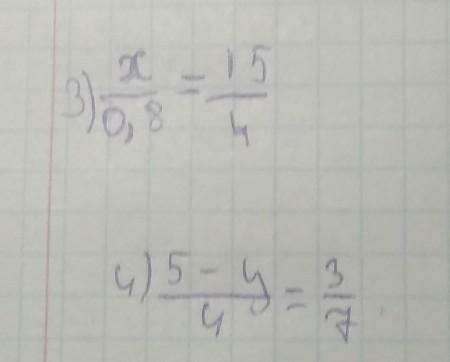 3) x/0,8 = 15/4
4) 5-y/y = 3/7